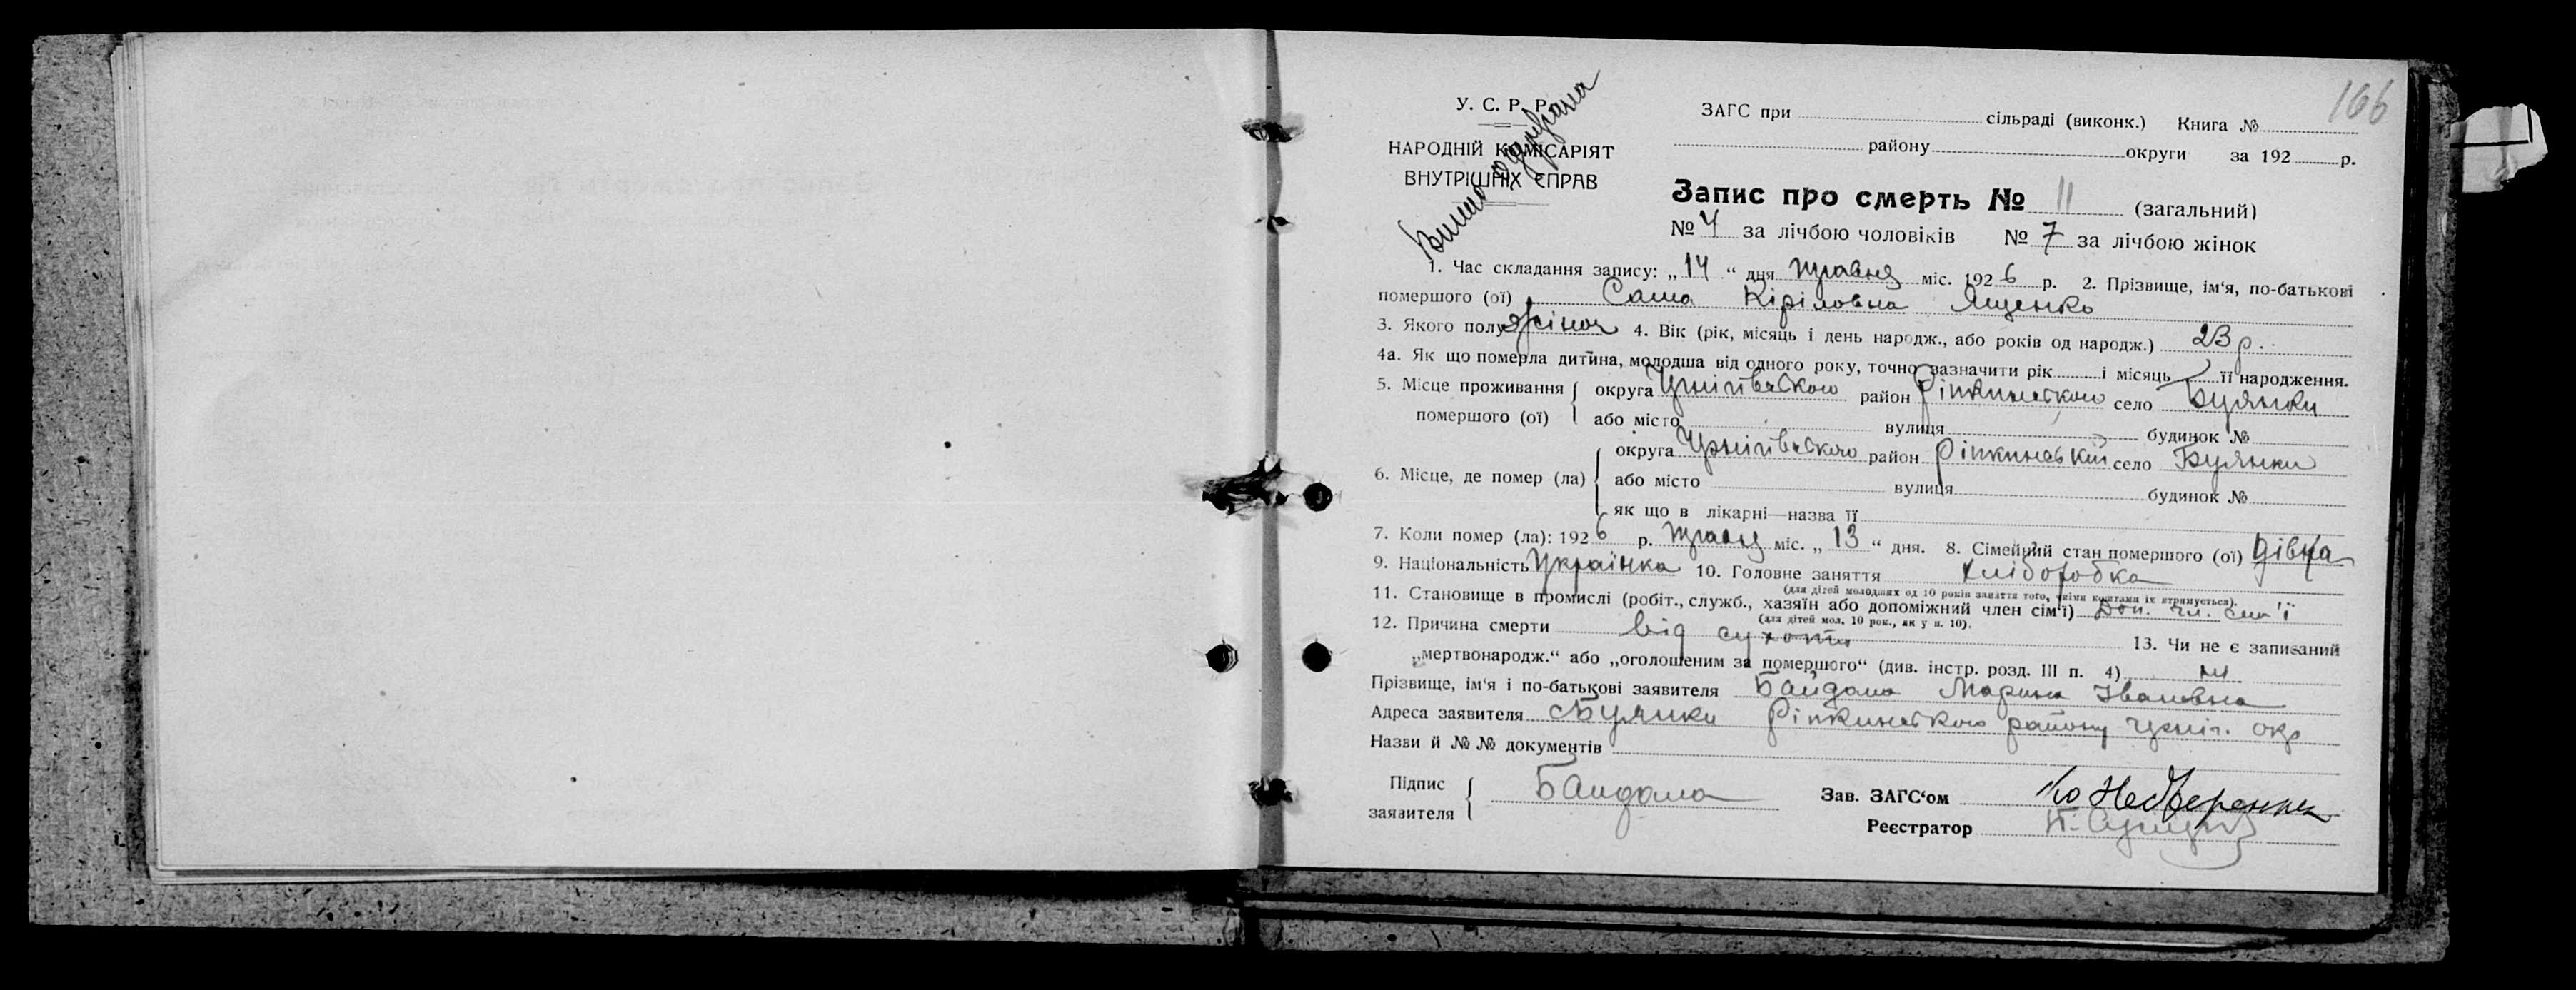 166
У. С. Р. Р.
НАРОДНІЙ КОМІСАРІЯТ
ВНУТРІШНІХ СПРАВ
ЗАГС при сільраді (виконк.) Книга №
району округи за 192 р.
Запис про смерть № 11 (загальний)
№ 4 за лічбою чоловіків № 7 за лічбою жінок
1. Час складання запису: „14“ дня травня міс. 1926 р. 2. Прізвище, ім‘я, по-батькові
помершого (ої) Саша Кіріловна Ященко
3. Якого полу жіноч 4. Вік (рік, місяць і день народж., або років од народж.) 23 р.
4а. Як що померла дитина, молодша від одного року, точно зазначити рік і місяць її народження.
5. Місце проживання помершого (ої) округа Чернігівського район Ріпкинського село Буянки
або місто вулиця будинок №
6. Місце, де помер (ла) округа Чернігівського район Ріпкинській село Буянки
або місто вулиця будинок №
як що в лікарні—назва її
7. Коли помер (ла): 1926 р. травн міс. „13“ дня. 8. Сімейний стан помершого (ої) дівка
9. Національність Українка 10. Головне заняття хліборобка
(для дітей молодших од 10 років заняття того, чиїми коштами їх втримується).
11. Становище в промислі (робіт., служб., хазяїн або допоміжний член сім‘ї) Доп. чл. сем'ї
(для дітей мол. 10 рок., як у п. 10).
12. Причина смерти від сухоти 13. Чи не є записаний
„мертвонародж.“ або „оголошеним за помершого“ (див. інстр. розд. III п. 4) ні
Прізвище, ім‘я і по-батькові заявителя Байдала Марина Івановна
Адреса заявителя с Буянки Ріпкинського району Черніг. окр
Назви й №№ документів
Підпис заявителя Баидала
Зав. ЗАГС‘ом
Реєстратор